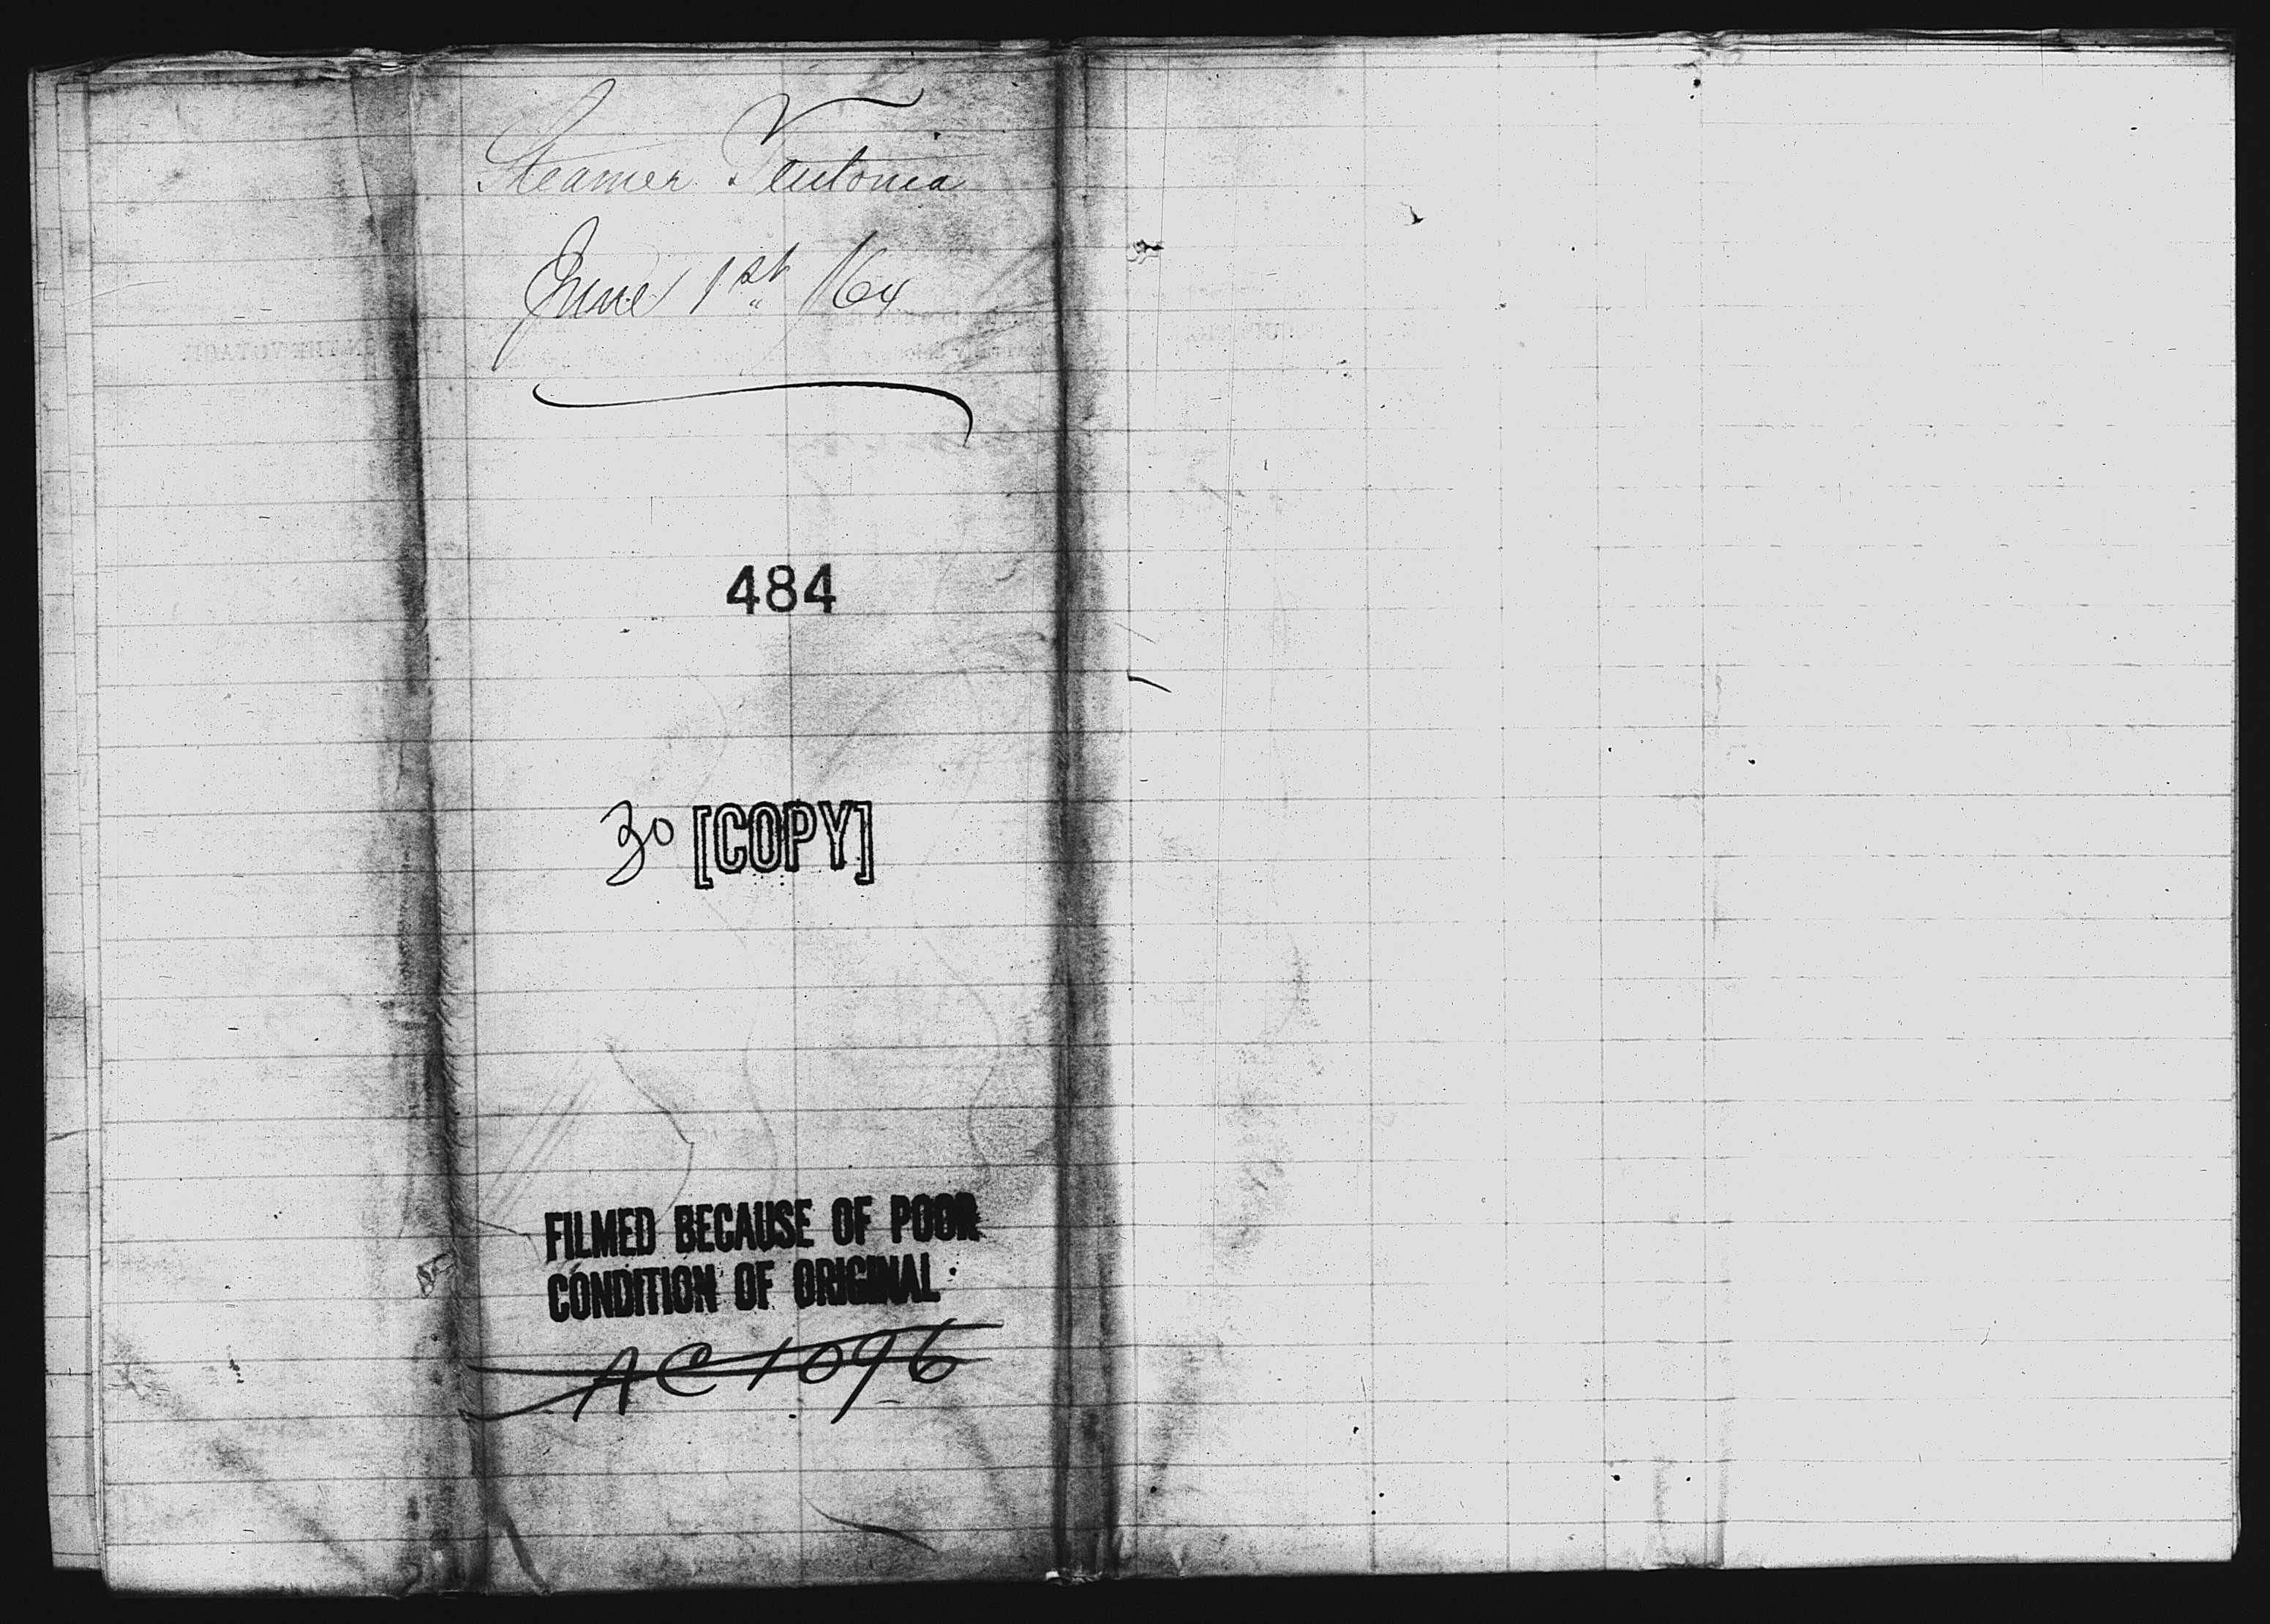 Steamer Teutonia
June 1st /64
484
30 [COPY]
FILMED BECAUSE OF POOR
CONDITION OF ORIGINAL
AC 1096